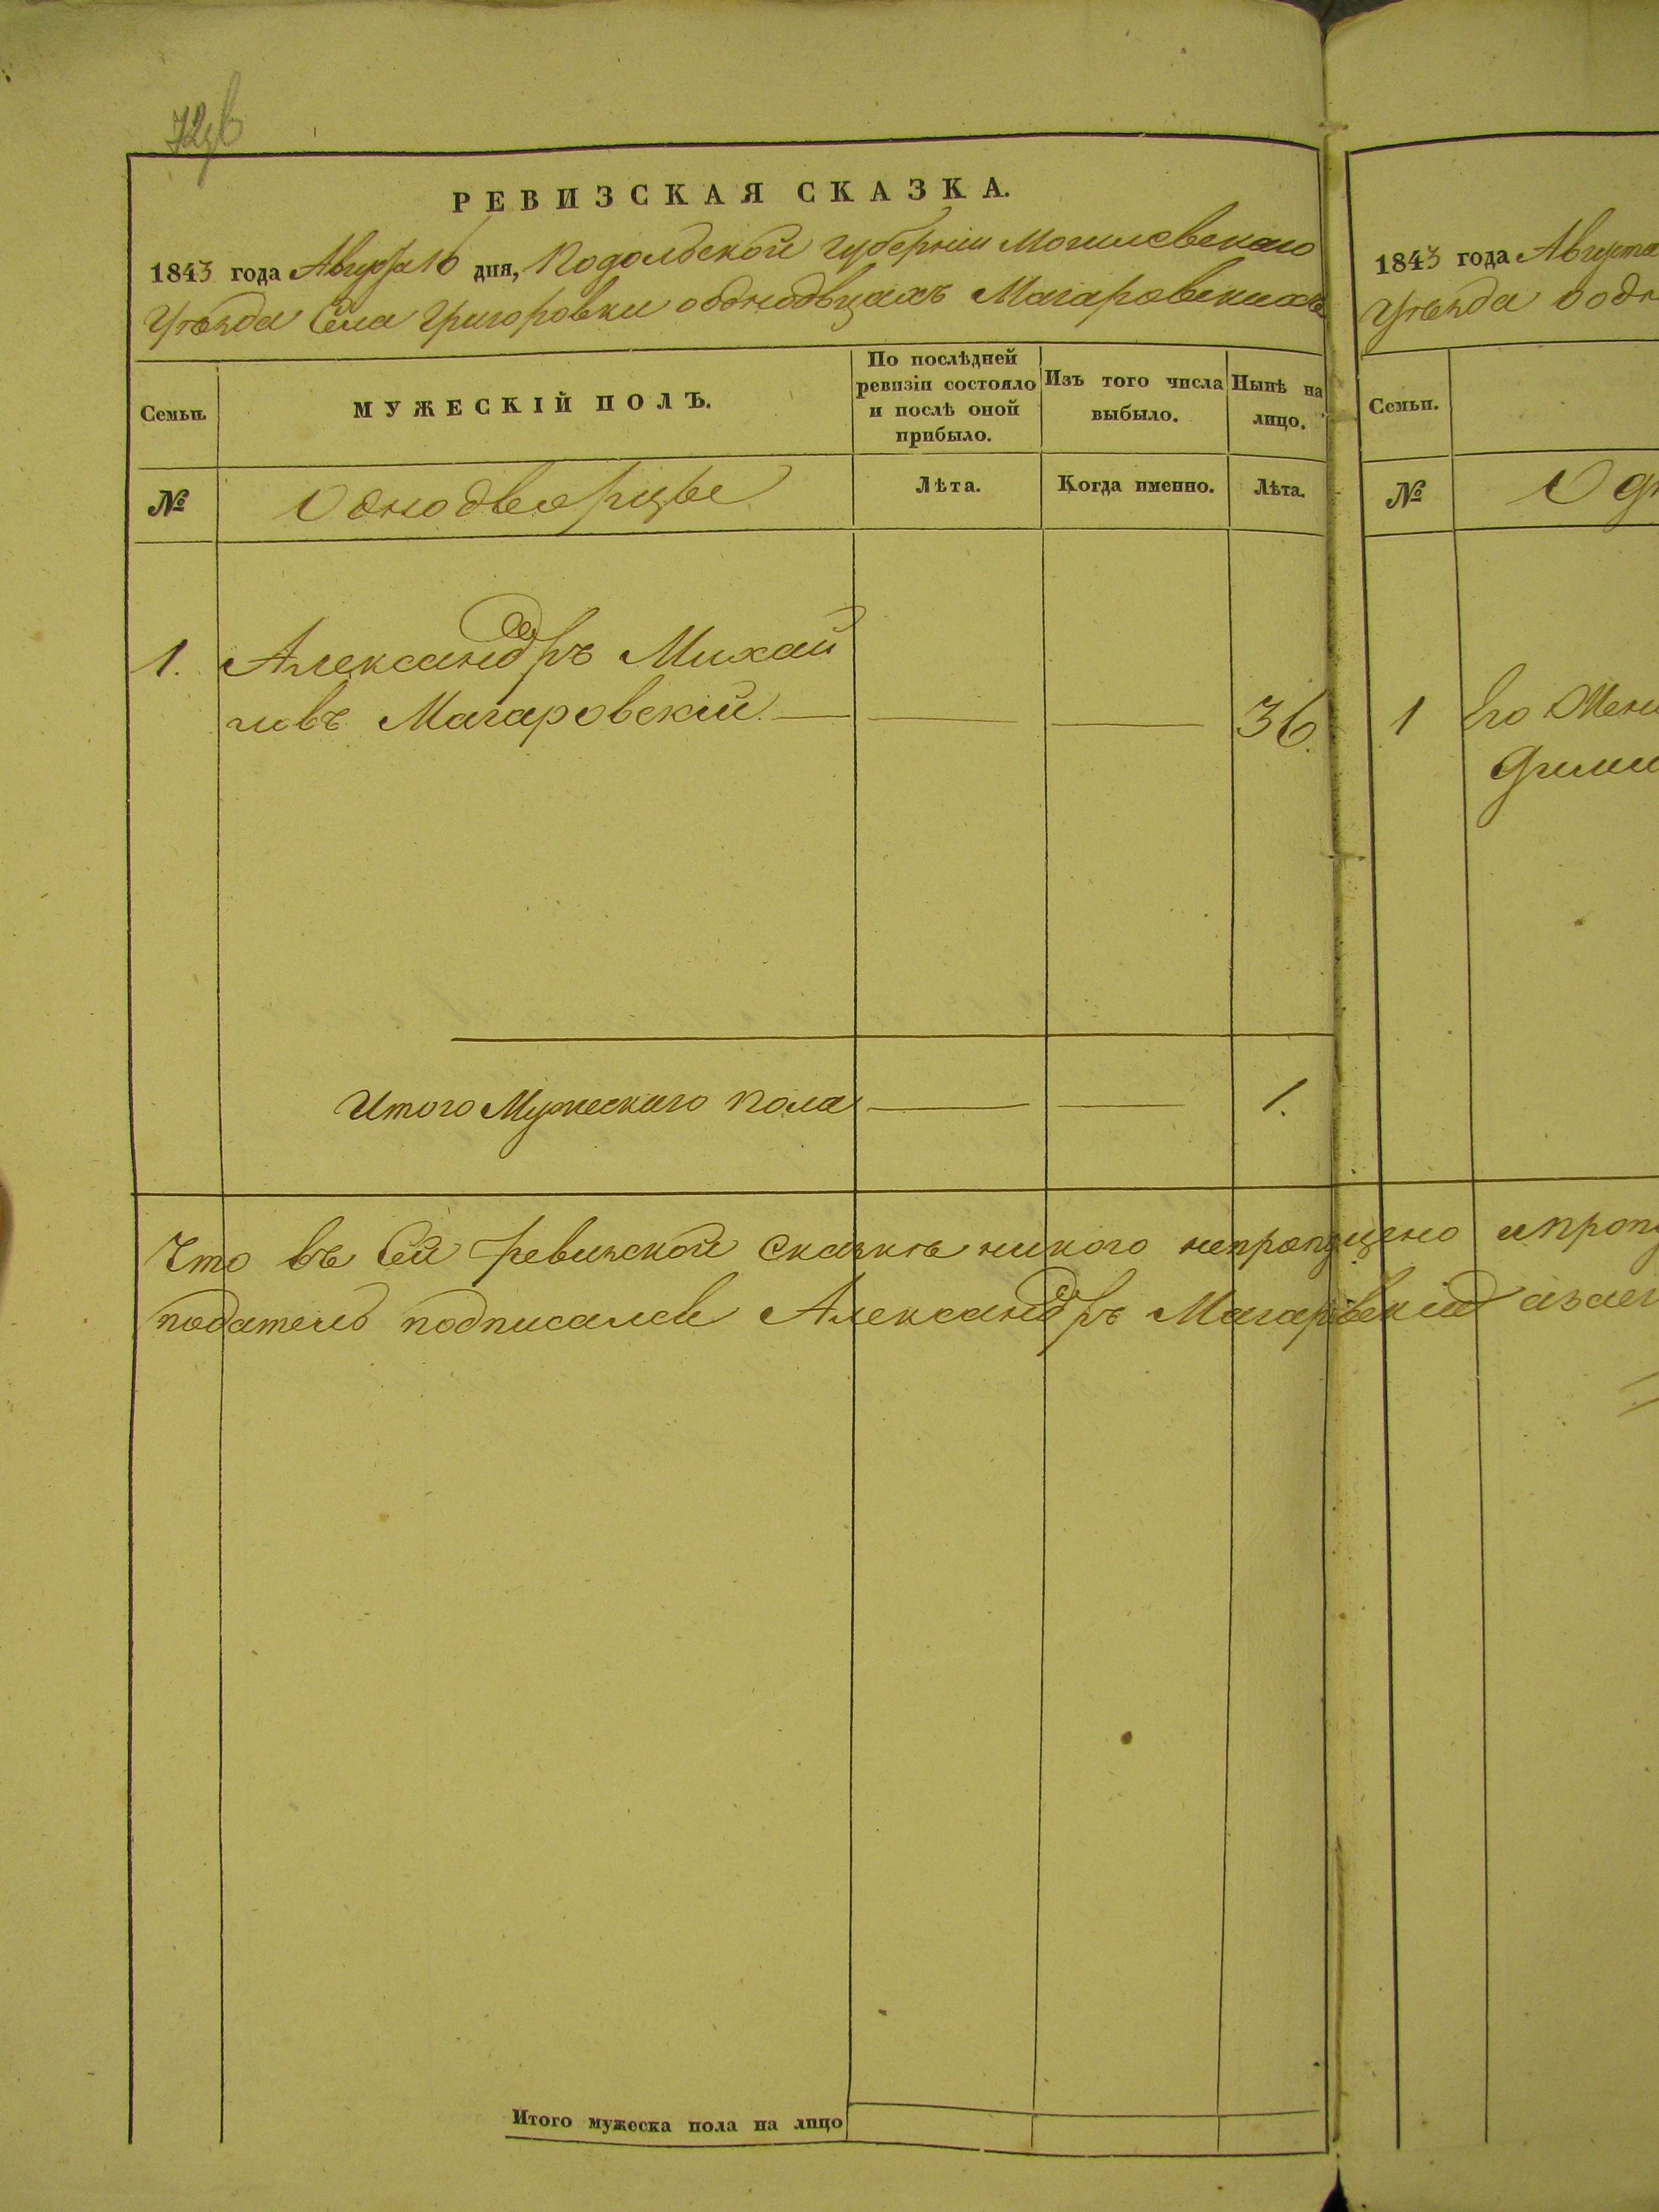 РЕВИЗСКАЯ СКАЗКА.
1843 года Августа 16 дня, Подольской Губерніи Могилевскаго
Уѣзда Села Григоровки ободнодвцахъ Магаровскихъ
Семьи.
МУЖЕСКІЙ ПОЛЪ.
По послѣдней
ревизіи состояло
и послѣ оной
прибыло.
Изъ того числа
выбыло.
Нынѣ на
лицо.
№
Однодворцы
Лѣта.
Когда именно.
Лѣта.
1. Александръ Михай
ловъ Магаровскій — — — 36.
Итого Мужескаго пола — — 1.
Что въ Сей ревизской Сказкѣ никого непропущено и
податель подписался Александръ Магаровскій
Итого мужеска пола на лицо
1843 года Августа
Уѣзда
Семьи.
№
1 Его Жена